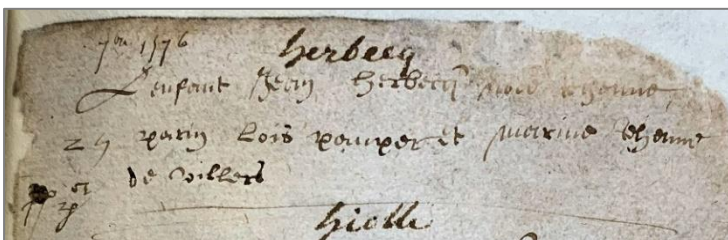 7bre 1576 herbecq
L'enfant Jean herbecq nõe Jehenne
29 parin Lois pamper et marine Jehenne
de Villers
hielle